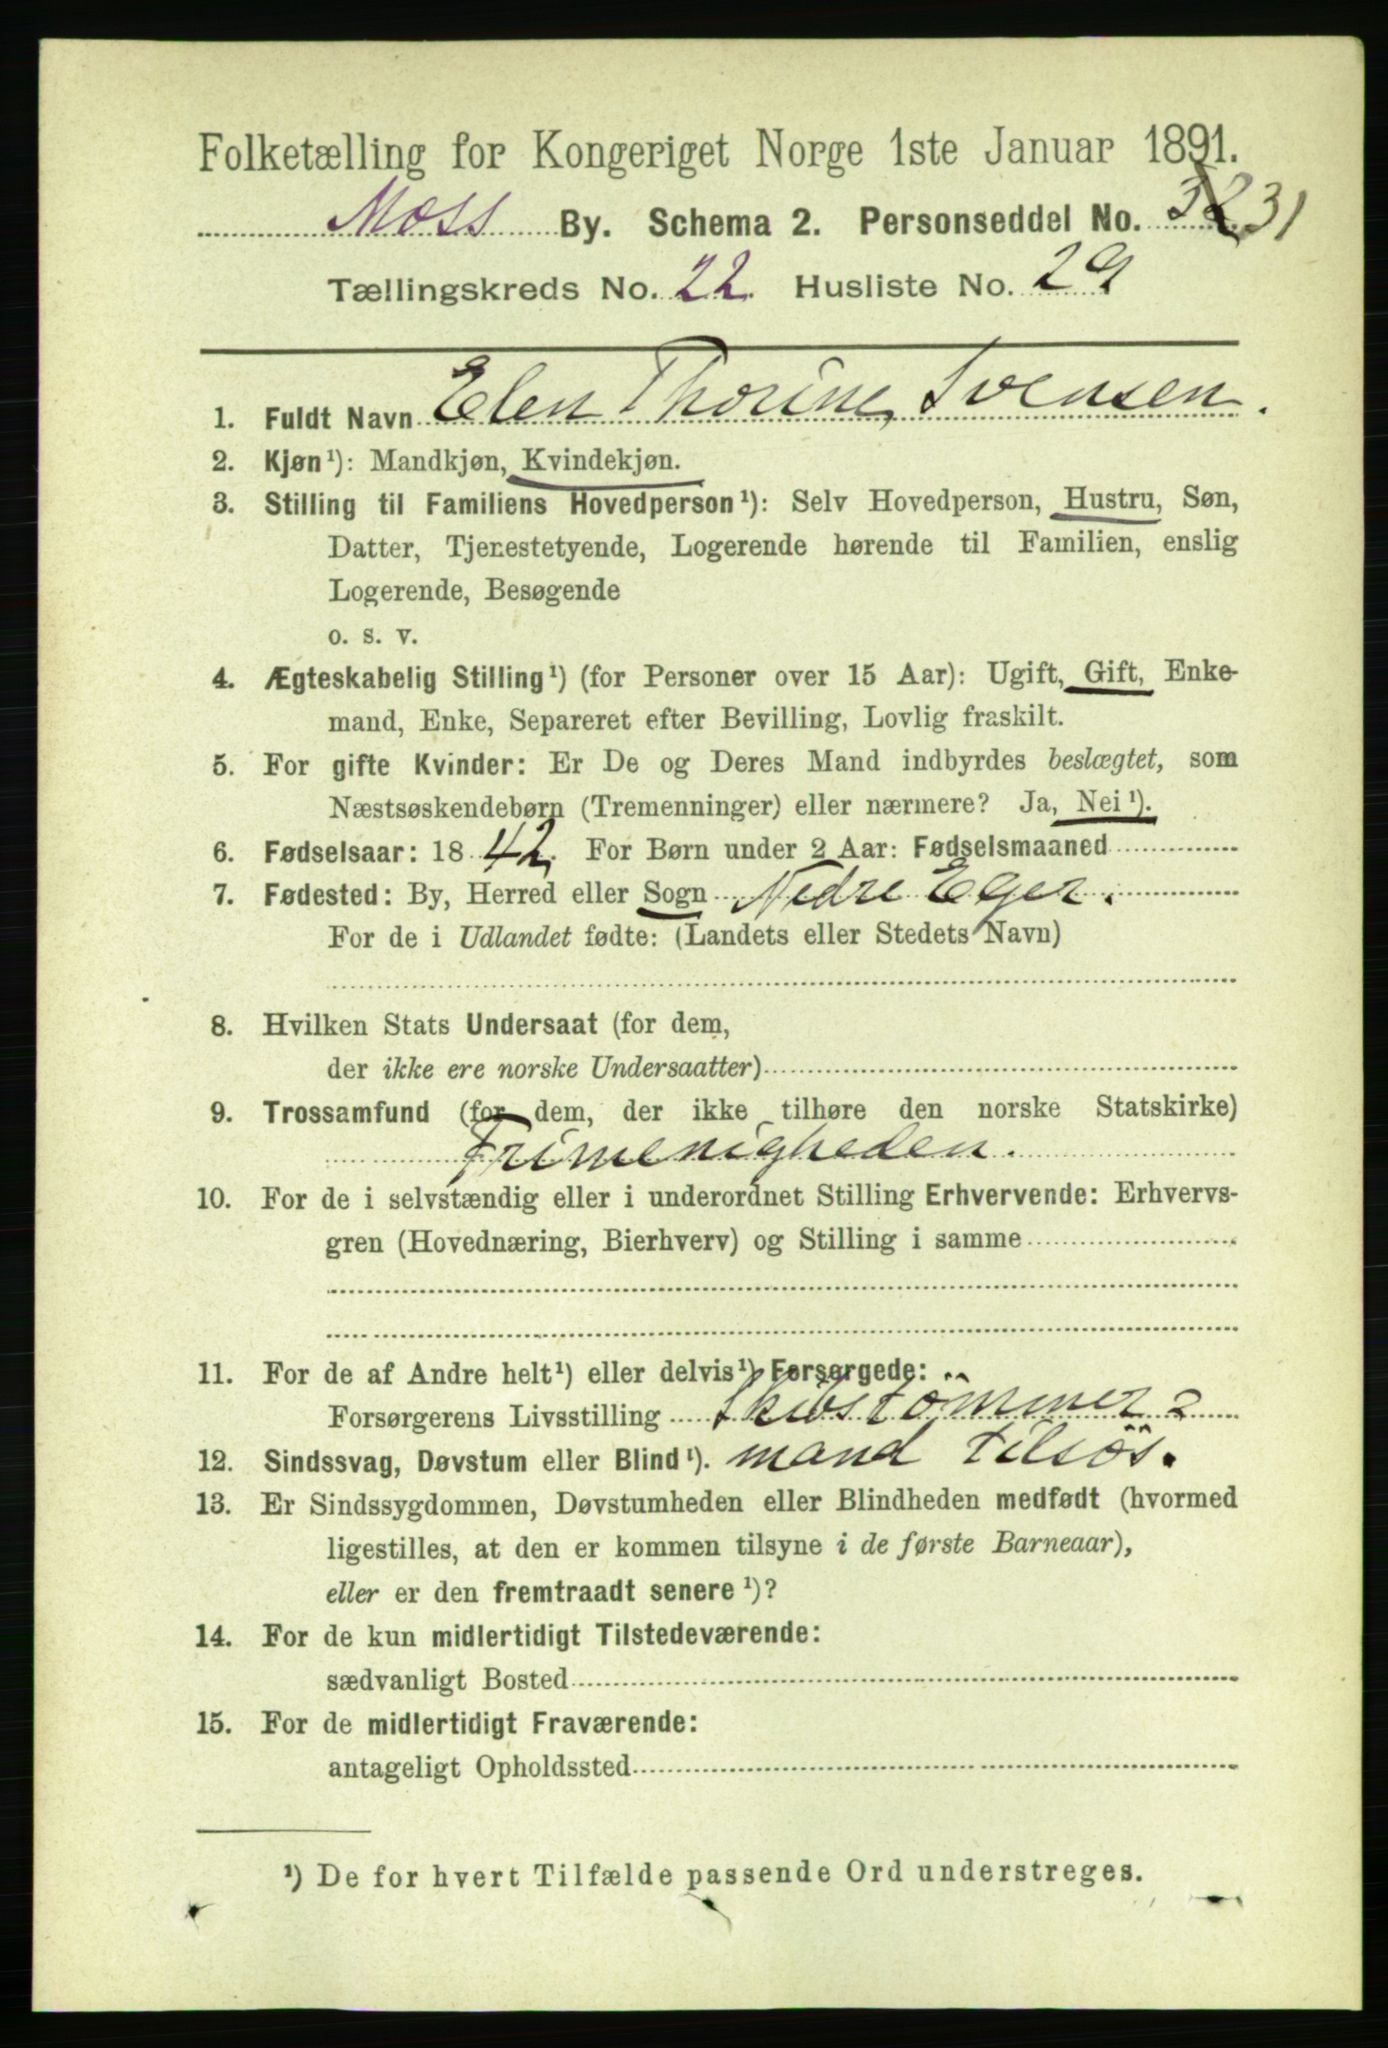 Folketælling for Kongeriget Norge 1ste Januar 1891.
Moss By. Schema 2. Personseddel No. 32 31
Tællingskreds No. 22. Husliste No. 29
1. Fuldt Navn Elen Thorine Svensen.
2. Kjøn¹): Mandkjøn, Kvindekjøn.
3. Stilling til Familiens Hovedperson¹): Selv Hovedperson, Hustru, Søn,
Datter, Tjenestetyende, Logerende hørende til Familien, enslig
Logerende, Besøgende
o. s. v.
4. Ægteskabelig Stilling¹) (for Personer over 15 Aar): Ugift, Gift, Enke-
mand, Enke, Separeret efter Bevilling, Lovlig fraskilt.
5. For gifte Kvinder: Er De og Deres Mand indbyrdes beslægtet, som
Næstsøskendebørn (Tremenninger) eller nærmere? Ja, Nei¹).
6. Fødselsaar: 1842. For Børn under 2 Aar: Fødselsmaaned
7. Fødested: By, Herred eller Sogn Nedre Eger.
For de i Udlandet fødte: (Landets eller Stedets Navn)
8. Hvilken Stats Undersaat (for dem,
der ikke ere norske Undersaatter)
9. Trossamfund (for dem, der ikke tilhøre den norske Statskirke)
Frimenigheden.
10. For de i selvstændig eller i underordnet Stilling Erhvervende: Erhvervs-
gren (Hovednæring, Bierhverv) og Stilling i samme
11. For de af Andre helt¹) eller delvis¹) Forsørgede:
Forsørgerens Livsstilling Skibstömmer=
12. Sindssvag, Døvstum eller Blind¹). mand tilsös.
13. Er Sindssygdommen, Døvstumheden eller Blindheden medfødt (hvormed
ligestilles, at den er kommen tilsyne i de første Barneaar),
eller er den fremtraadt senere¹)?
14. For de kun midlertidigt Tilstedeværende:
sædvanligt Bosted
15. For de midlertidigt Fraværende:
antageligt Opholdssted
¹) De for hvert Tilfælde passende Ord understreges.